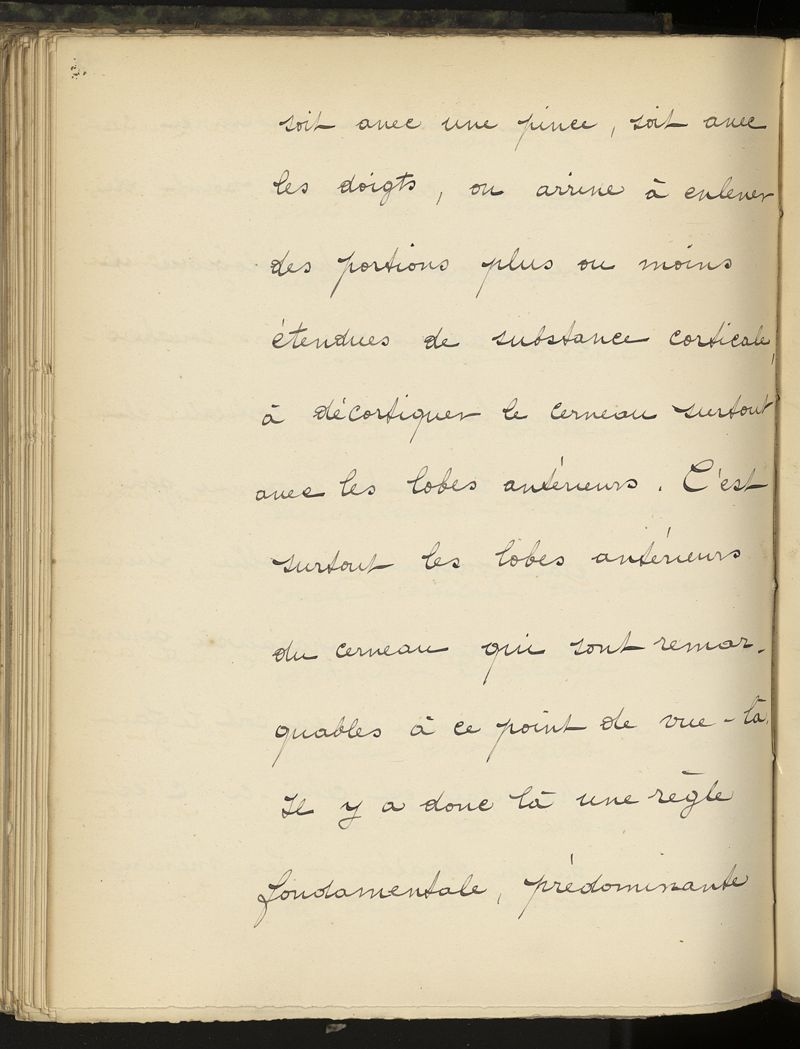 soit avec une pince, soit avec
les doigts, on arrive à enlever
des portions plus ou moins
étendues de substance corticale,
à décortiquer le cerveau surtout
avec les lobes antérieurs. C'est
surtout les lobes antérieurs
du cerveau qui sont remar-
quables à ce point de vue-là.
Il y a donc là une règle
fondamentale, prédominante